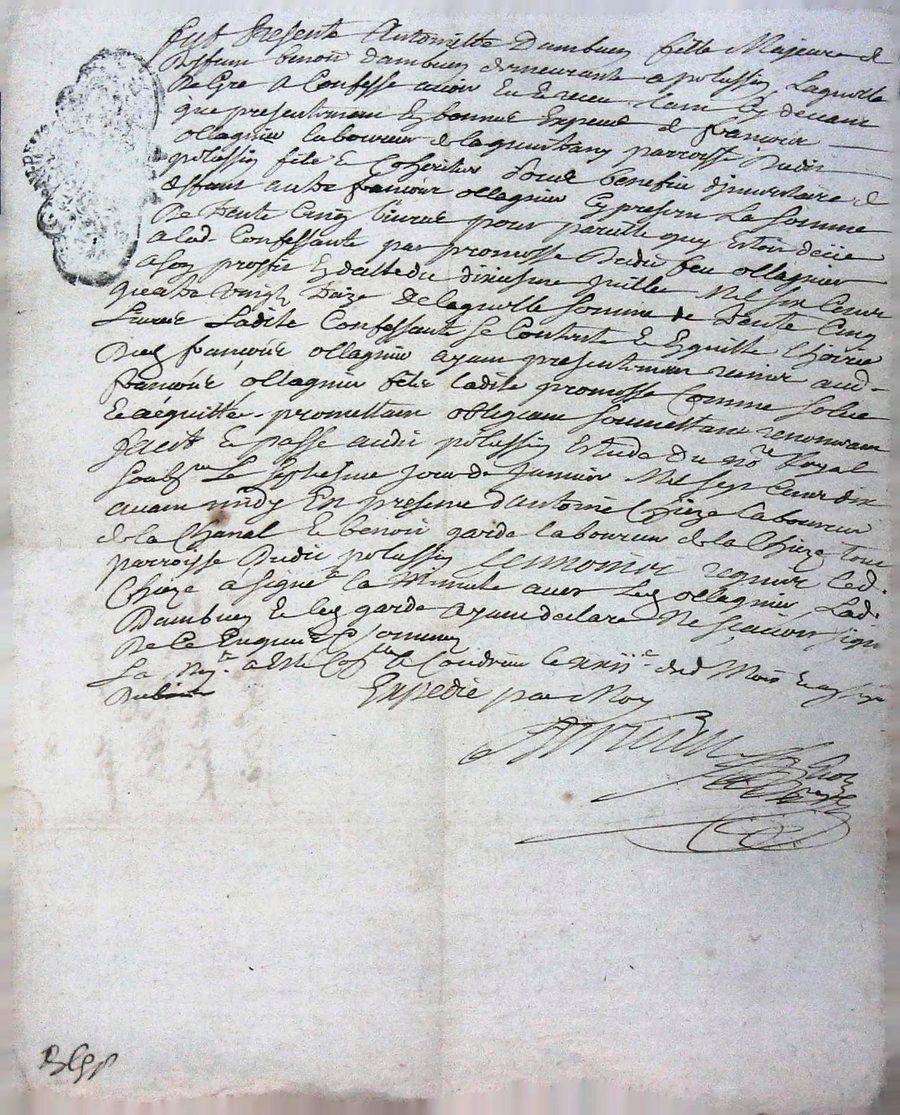 Fut Presente Antoinette Dambuen fille Majeure de
deffunt benoit dambuen demeurante a polussin Laquelle
De Gre A Confesse avoir Eu et receu Cy devant
que presentemen En bonnes Especes de francois
ollagnier laboureur de la parroisse dudit
polussin fils & Coheritier soub benefice dinventaire de
deffunt autre francois ollagnier Cy present La Somme
De Trente Cinq livres pour pareille quy Estoit deüe
a lad. Confessante par promesse Dudit feu ollagnier
a son proffit En datte du dixiesme Juillet Mil six Cens
quatre vingt Traize de laquelle somme de Trente Cinq
Livres Ladite Confessante se Contente & En quitte
Led. francois ollagnier ayant presentement remis aud.
francois ollagnier fils ladite promesse Comme solue
& acquitté. promettant obligeant soumettant renonceant
faict & passé audit polussin Estude du no.re Royal
soubs.né Le Septiesme Jour de Janvier Mil sept Cens dix
avant midy En presence d'antoine Chieze laboureur
de la Chanal & benoit garde laboureur de la Chieze Tous
parroisse Dudit polussin requis Led.
Chieze a signé la Minute avec Led. ollagnier Lad.
Dambuen & led. garde ayant declaré Ne scavoir signer
De Ce Enquis & Sommés
La a Esté a Condrieu le xxii.e dud. Mois
Expedié par Moy